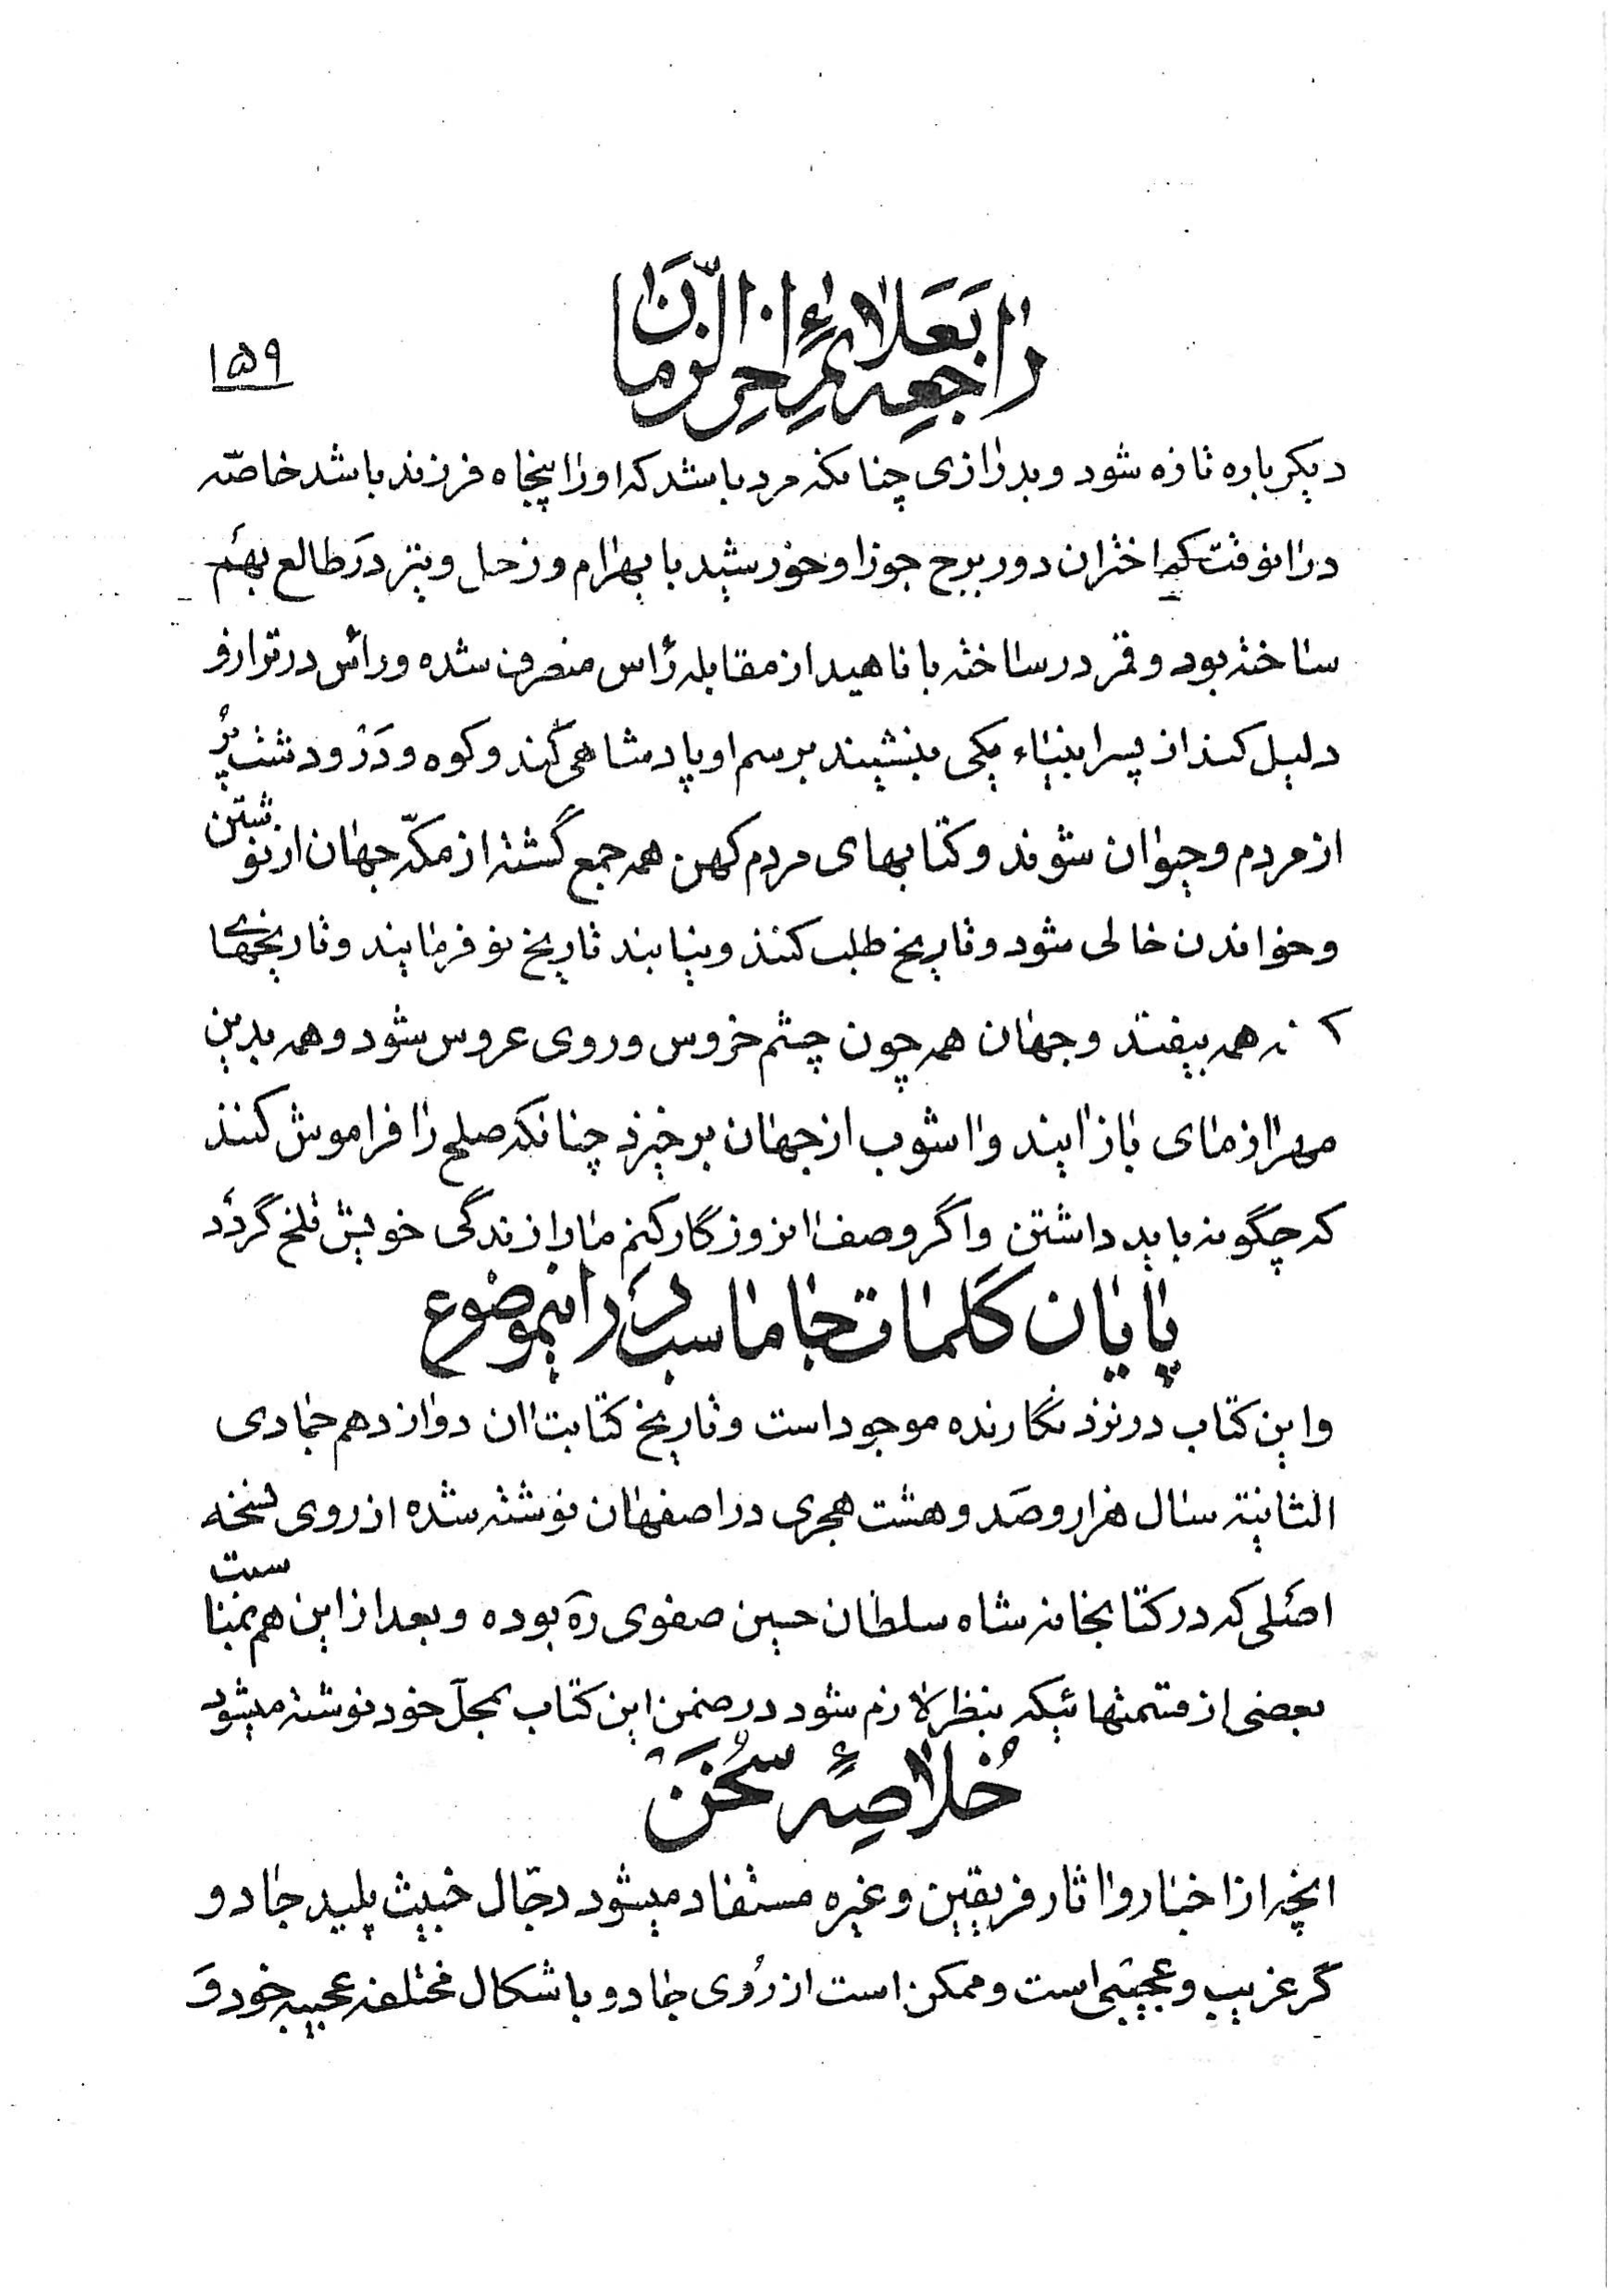 راجعه بعلائم اخر الزمان
۱۵۹
دیکر باره تازه شود و بدرازی چنانکه مرد باشد که او را پنجاه فرزند باشد خاصّه
در انوقت که اختران دور برج جوزا و خورشید با بهرام و زحل و تیر در طالع بهم
ساخته بود و قمر در ساخته با ناهید از مقابله رأس منصرف شده و رأس در ترازو
دلیل کند از پسر ابنیاء یکی بنشیند برسم او پادشاهی کند و کوه و در و دشت پر
از مردم و حیوان شوند و کتابهای مردم کهن همه جمع گشته از مکّه جهان از نوشتن
و خواندن خالی شود و تاریخ طلب کنند و نیابند تاریخ نو فرمایند و تاریخهای
که نه همه بیفتد و جهان همه چون چشم خروس و روی عروس شود و همه بدین
مهرازمای باز ایند و اشوب از جهان برخیزد چنانکه صلح را فراموش کنند
که چگونه باید داشتن و اگر وصف انروزگار کنم ما را زندگی خویش تلخ گردد
پایان کلمات جاماسب در اینموضوع
و این کتاب در نزد نگارنده موجود است و تاریخ کتابت ان دوازدهم جمادی
الثانیة سال هزار و صد و هشت هجری در اصفهان نوشته شده از روی نسخه
اصلی که در کتابخانه شاه سلطان حسین صفوی ره بوده و بعد از این هم بمناسبت
بعضی از قسمتهائیکه بنظر لازم شود در ضمن این کتاب بمحل خود نوشته میشود
خلاصهٔ سخن
انچه از اخبار و اثار فریقین و غیره مستفاد میشود دجّال خبیث پلید جادو
گر غریب و عجیبی است و ممکن است از روی جادو باشکال مختلفه عجیبه خود و